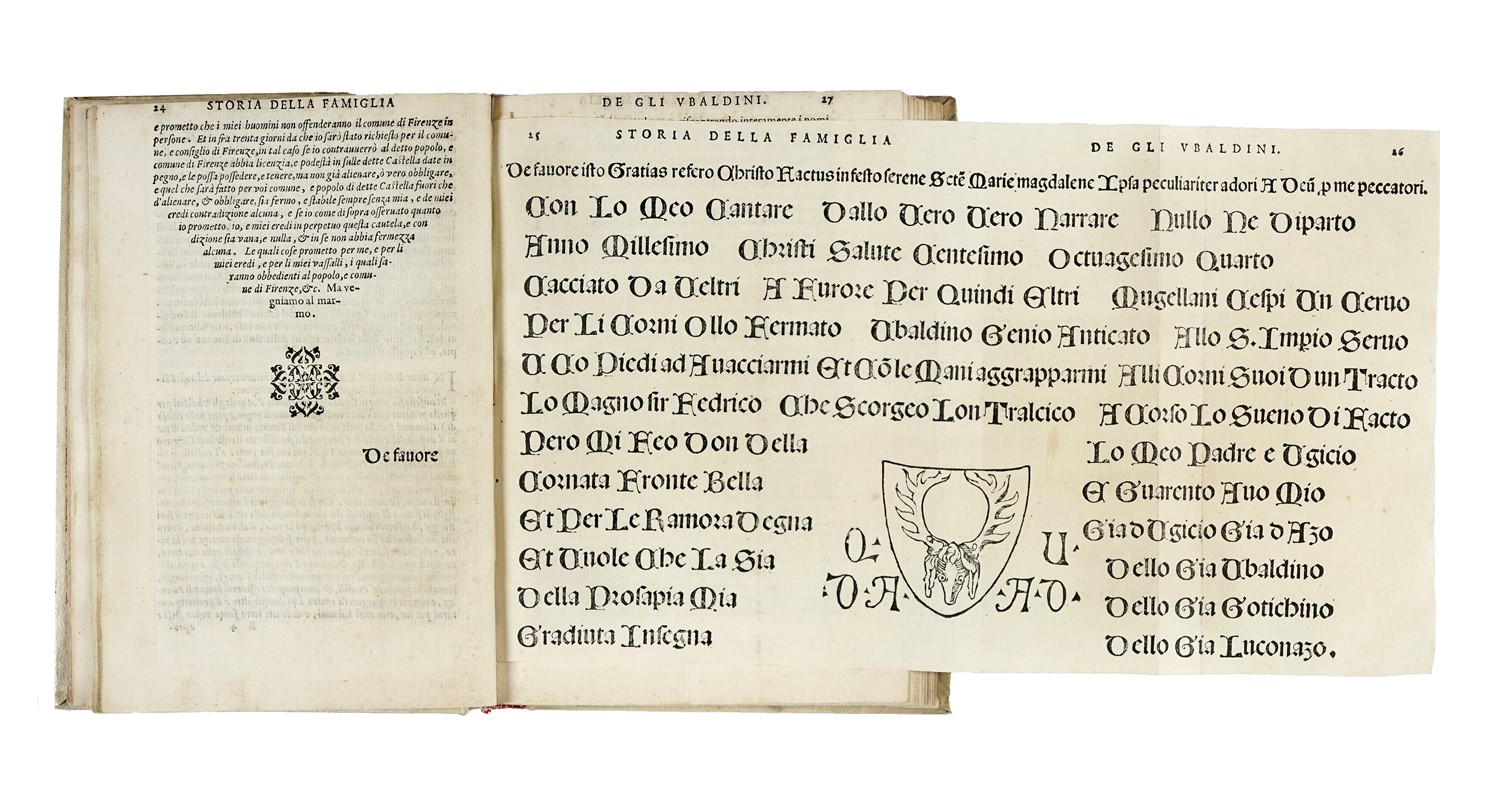 24 STORIA DELLA FAMIGLIA
e prometto che i miei huomini non offenderanno il comune di Firenze in
persone. Et in fra trenta giorni da che io sarò stato richiesto per il comu-
ne, e consiglio di Firenze, in tal caso se io contrauuerrò al detto popolo, e
comune di Firenze abbia licenzia, e podestà in sulle dette Castella date in
pegno, e le possa possedere, e tenere, ma non già alienare, ò vero obbligare,
e quel che sarà fatto per voi comune, e popolo di dette Castella fuori che
d'alienare, & obbligare, sia fermo, e stabile sempre senza mia, e de miei
eredi contradizione alcuna, e se io come di sopra osseruato quanto
io prometto, io, e miei eredi in perpetuo questa cautela, e con
dizione sia vana, e nulla, & in se non abbia fermezza
alcuna. Le quali cose prometto per me, e per li
miei eredi, e per li miei vassalli, i quali sa-
ranno obbedienti al popolo, e comu-
ne di Firenze, &c. Ma ve-
gniamo al mar-
mo.
De fauore
DE GLI VBALDINI. 27
25 STORIA DELLA FAMIGLIA
DE GLI VBALDINI. 26
De fauore isto Gratias refero Christo Factus in festo serene Sctẽ Marie magdalene Ipsa peculiariter adori A Deũ ꝑ me peccatori.
Con Lo Meo Cantare Dallo Vero Vero Narrare Nullo Ne Diparto
Anno Millesimo Christi Salute Centesimo Octuagesimo Quarto
Cacciato Da Veltri A Furore Per Quindi Eltri Mugellani Cespi Un Ceruo
Per Li Corni Ollo Fermato Ubaldino Genio Anticato Allo S. Impio Seruo
U Co Piedi ad Auacciarmi Et Cõ le Mani aggrapparmi Alli Corni Suoi Dun Tracto
Lo Magno sir Fedrico Che Scorgeo Lon Tralcico A Corso Lo Sueno Di Facto
Pero Mi Feo Don Della
Cornata Fronte Bella
Et Per Le Ramora Degna
Et Uuole Che La Sia
Della Prosapia Mia
Gradiuta Insegna
Q. U.
D. A. A. D.
Lo Meo Padre e Ugicio
E Guarento Auo Mio
Gia d Ugicio Gia d Azo
Dello Gia Ubaldino
Dello Gia Gotichino
Dello Gia Luconazo.